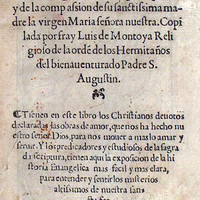 y de la compasion de su sanctissima ma
dre la virgen Maria señora nuestra. Copi
lada por fray Luis de Montoya Reli
gioso de la ordē de los Hermitaños
del bienauenturado Padre S.
Augustin.
Tienen en este libro los Christianos deuotos
declaradas las obras de amor, que nos ha hecho nu
estro señor Dios, para nos mouer a mas lo amar y
seruir. Y los predicadores y estudiosos de la sagra
da scriptura, tienen aqui la exposicion de la hi
storia Euangelica mas facil y mas clara,
para entender y sentir los misterios
altissimos de nuestra san